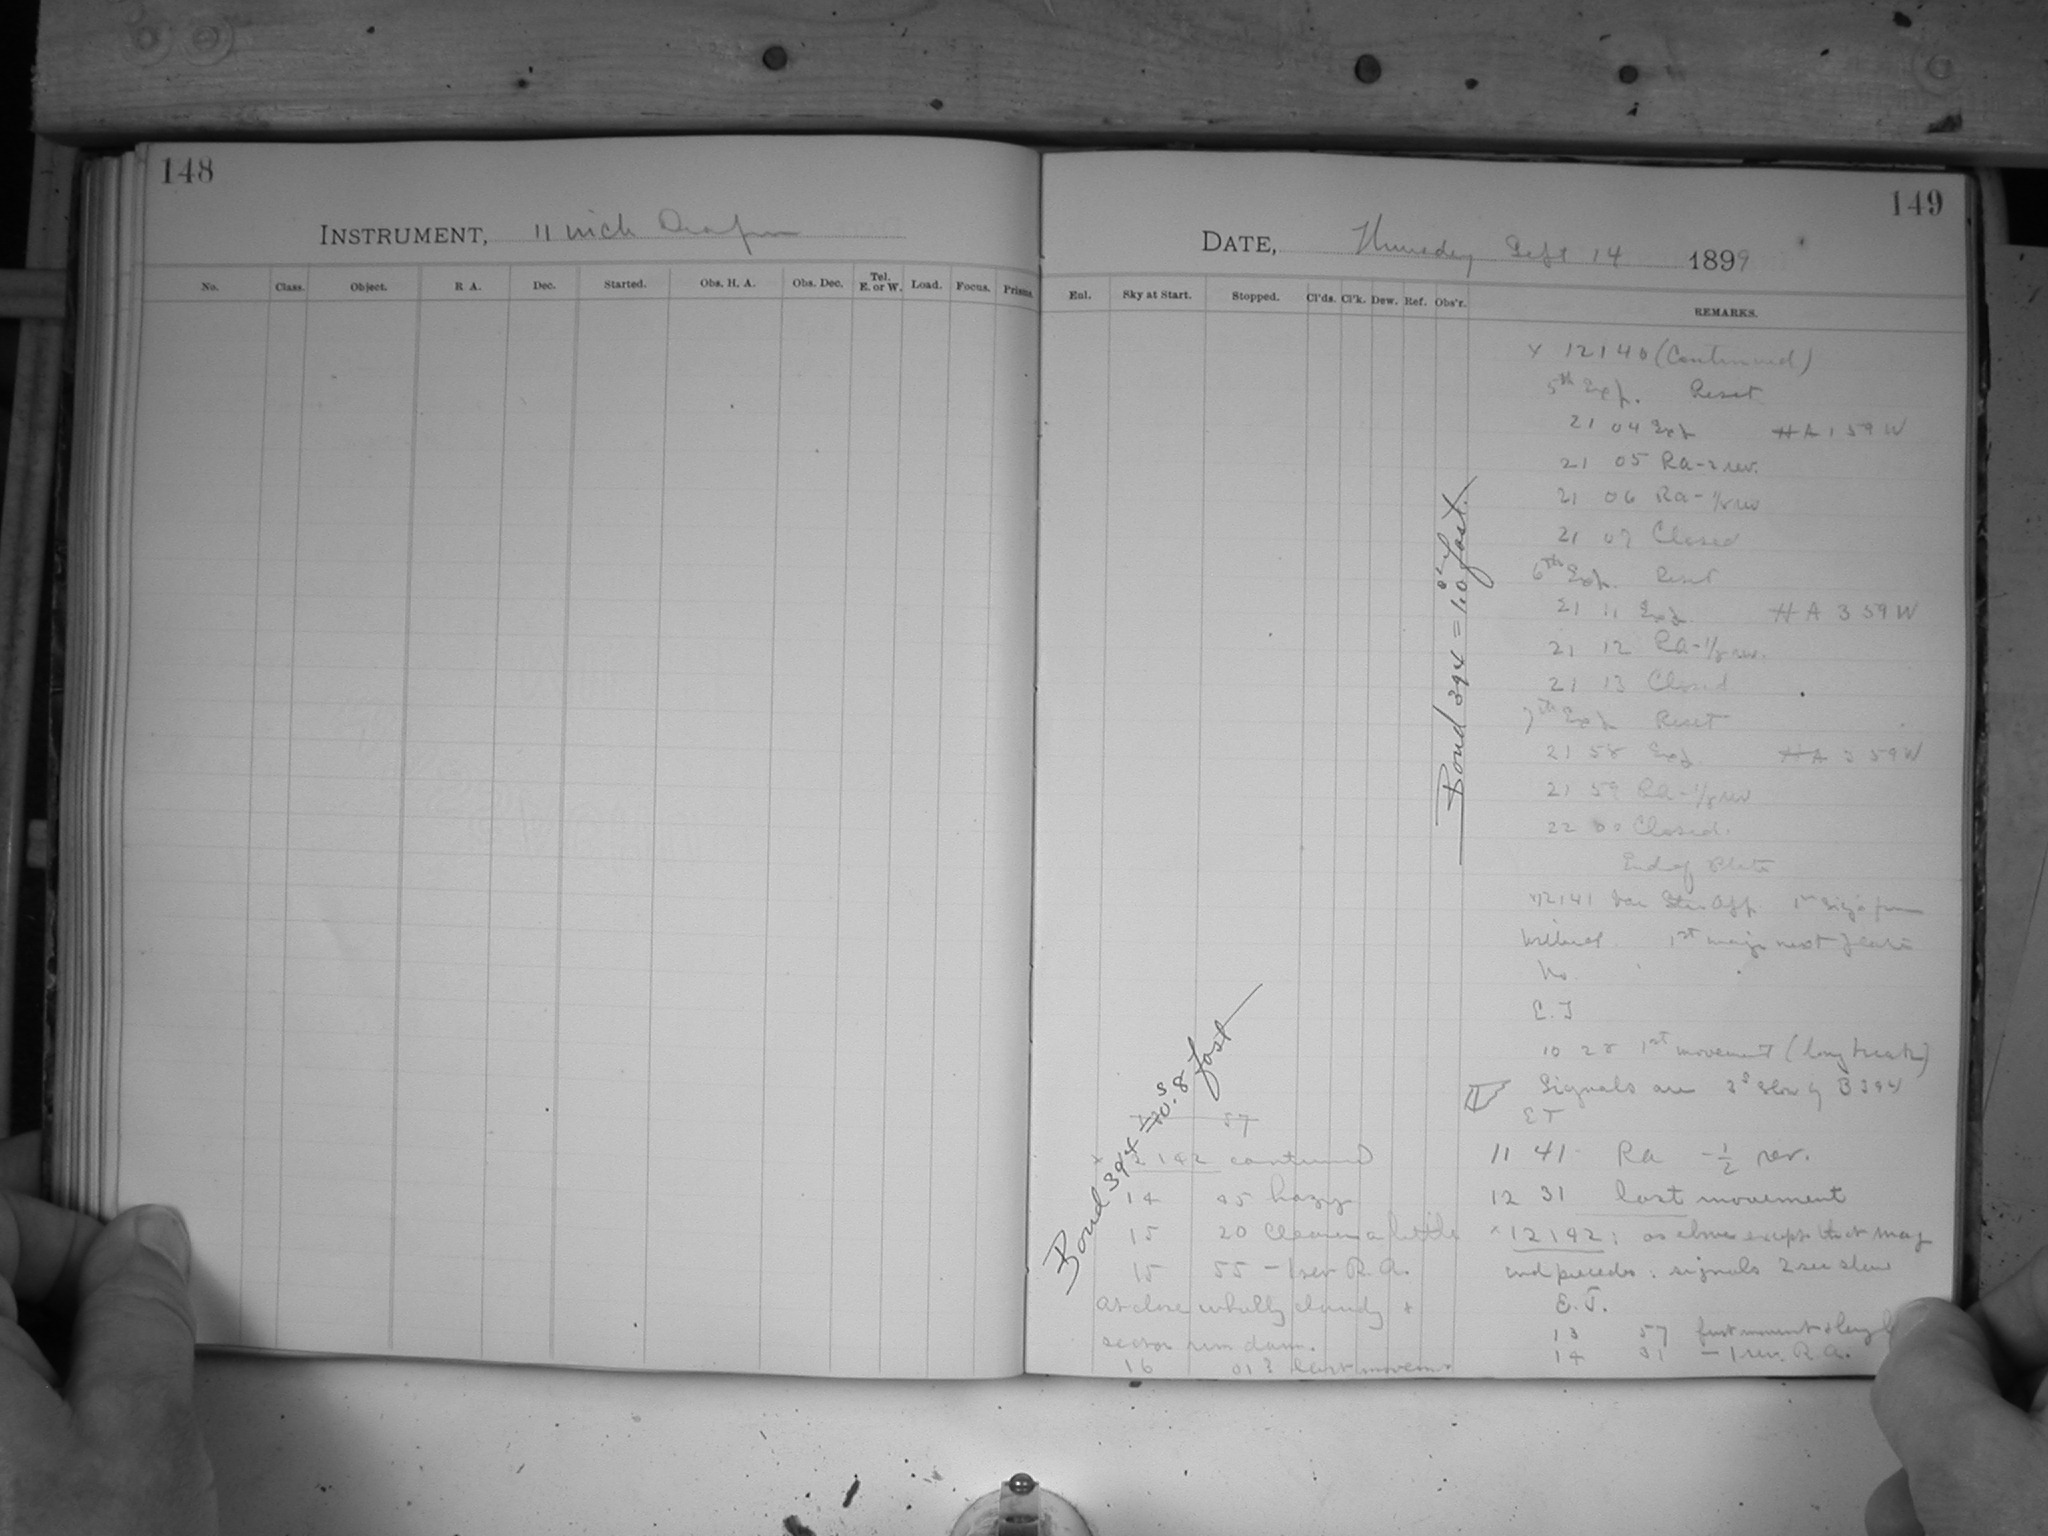 148
INSTRUMENT, 11 inch Draper
No. Class. Object. R A. Dec. Started. Obs. H. A. Obs. Dec. Tel. E. or W. Load. Focus. Prisms.
149
DATE, Thursday Sept 14 1899
Eul. Sky at Start. Stopped. Cl'ds. Cl'k. Dew. Ref. Obs'r. REMARKS.
x 12140 (Continued)
5th Exp. Reset
21 04 Exp HA 1 59 W
21 05 Ra - 2 rev.
21 06 Ra - 1/8 rev
21 07 Closed
6th Exp. Reset
21 11 Exp. HA 3 59 W
21 12 Ra - 1/8 rev.
21 13 Closed
7th Exp Reset
21 58 Exp. HA 3 59 W
21 59 Ra - 1/8 rev
22 00 Closed.
End of Plate
Bond 394 = 1.0 s fast.
12141 Var Star App.
Method. 1st
No.
E. T
10 28 1st movement (long break)
Signals are 3s slow of B 394
E T
11 41 Ra - 1/2 rev.
12 31 last movement
x 12142: as above except that mag
precedes: signals 2 sec slow
E. T.
13 57 first moment & long
14 31 - 1 rev. R. A.
Bond 394 s.8 fast
57
x 12142 continued
14 45 hazy
15 20 Clearer a little
15 55 - 1 rev R. A.
at close wholly cloudy &
sector run down.
16 01? last movem